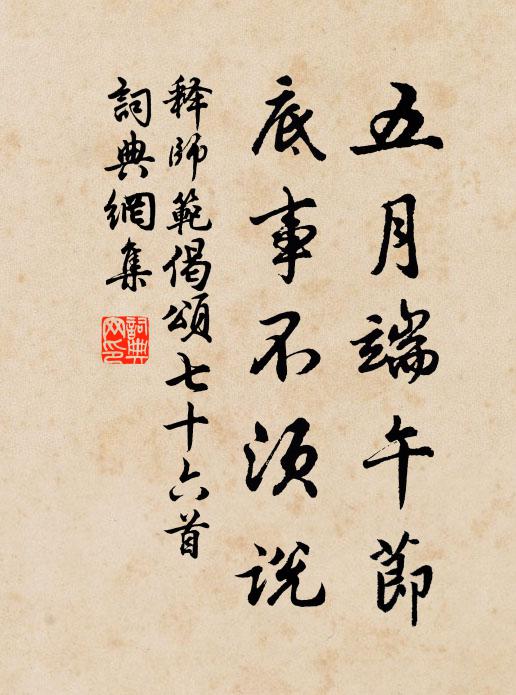 五月端午節
底事不須說
释師範偈頌七十六首
詞典網集
詞典網印